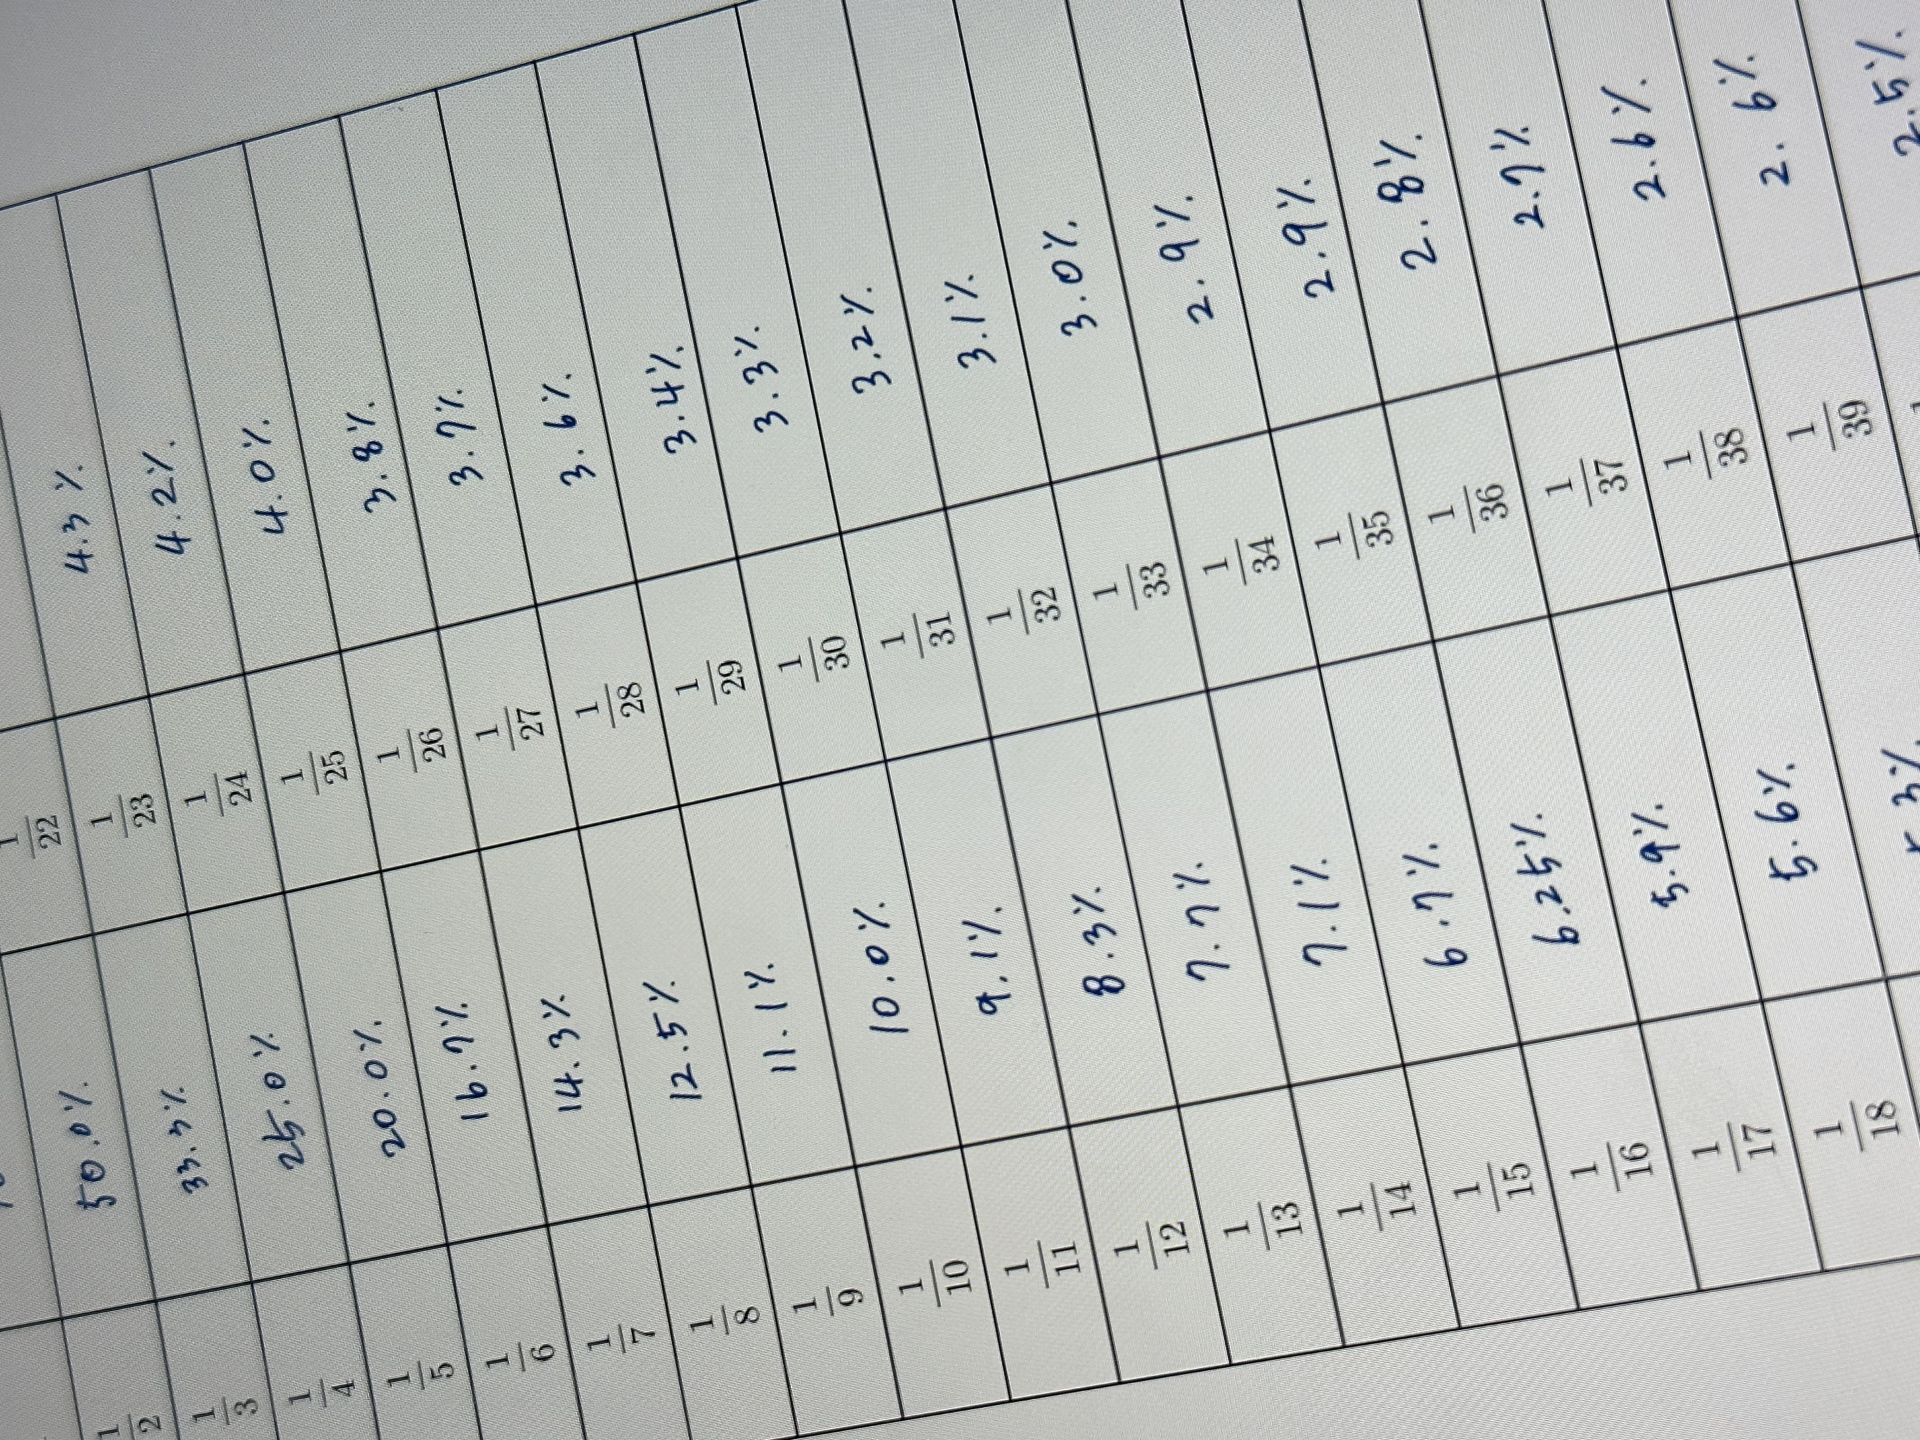 1/2 50.0% 1/22
1/3 33.3% 1/23 4.3%
1/4 25.0% 1/24 4.2%
1/5 20.0% 1/25 4.0%
1/6 16.7% 1/26 3.8%
1/7 14.3% 1/27 3.7%
1/8 12.5% 1/28 3.6%
1/9 11.1% 1/29 3.4%
1/10 10.0% 1/30 3.3%
1/11 9.1% 1/31 3.2%
1/12 8.3% 1/32 3.1%
1/13 7.7% 1/33 3.0%
1/14 7.1% 1/34 2.9%
1/15 6.7% 1/35 2.9%
1/16 6.25% 1/36 2.8%
1/17 5.9% 1/37 2.7%
1/18 5.6% 1/38 2.6%
1/39 2.6%
2.5%